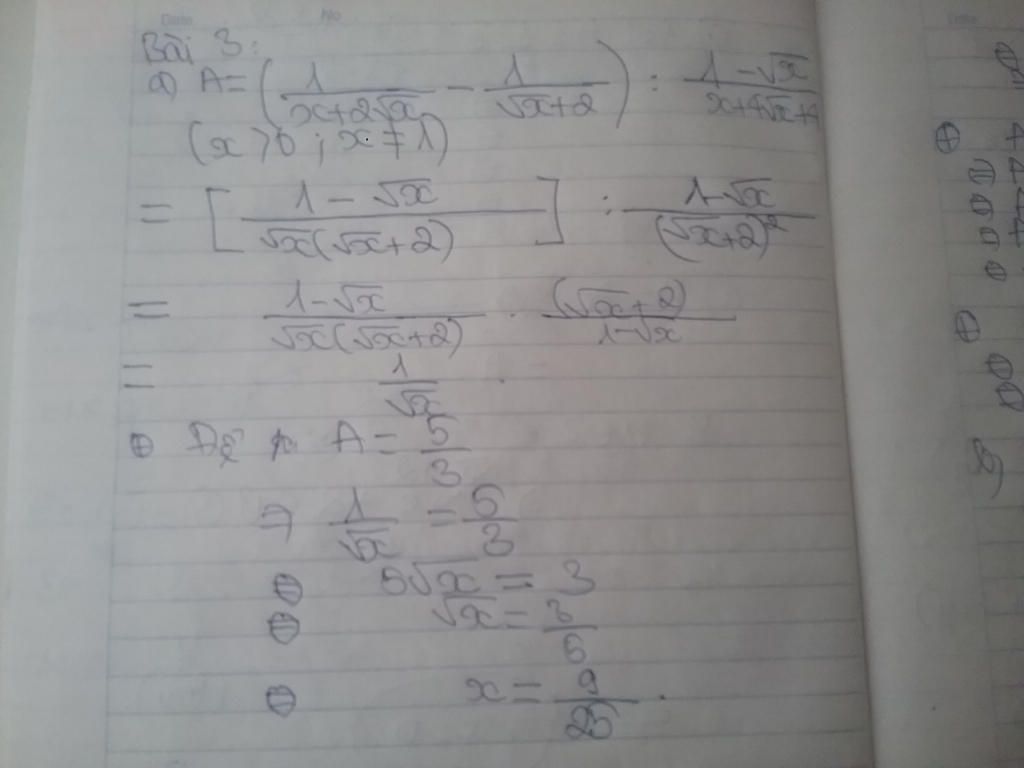 Date No Date
Bài 3:
a) A = (1/(x+2√x) - 1/(√x+2)) : (1-√x)/(x+4√x+4
(x > 0 ; x ≠ 1)
= [(1-√x)/(√x(√x+2))] : (1-√x)/(√x+2)²
= (1-√x)/(√x(√x+2)) . (√x+2)/(1-√x)
= 1/√x .
A = 5/3
⇒ 1/√x = 5/3
⇔ 5√x = 3
⇔ √x = 3/5
⇔ x = 9/25 .